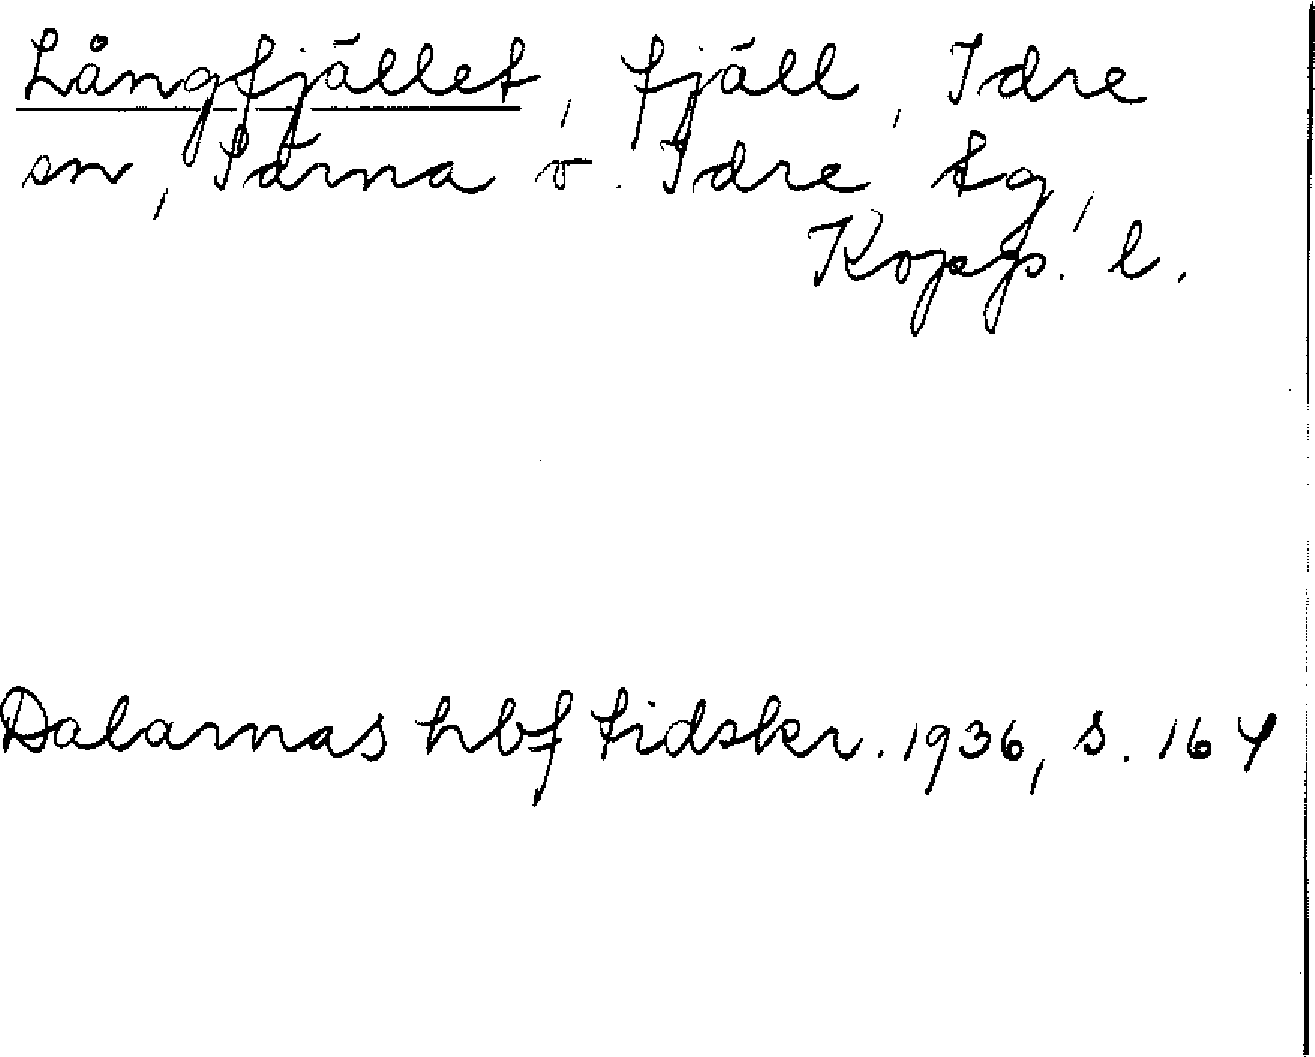 Långfjället, fjäll, Idre
sn, Särna o. Idre tg,
Kopp. l.
Dalarnas hbf tidskr. 1936, s. 164